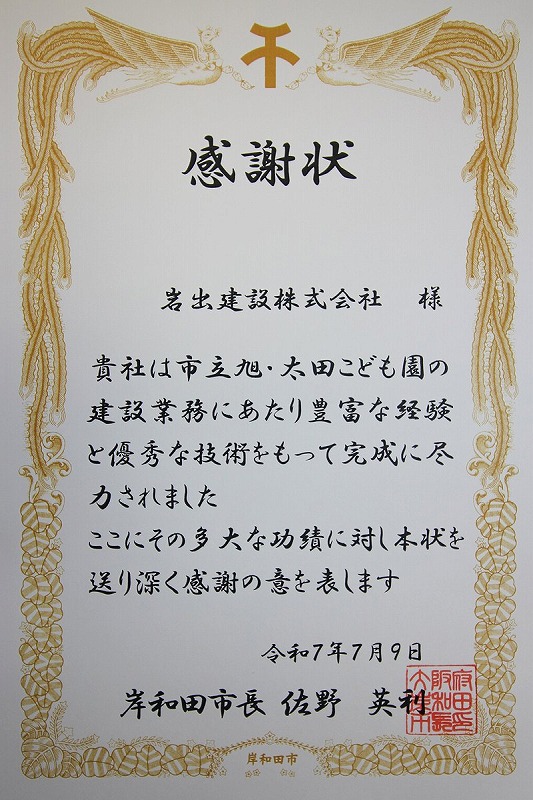 感謝状
岩出建設株式会社 様
貴社は市立旭・太田こども園の
建設業務にあたり豊富な経験
と優秀な技術をもって完成に尽
力されました
ここにその多大な功績に対し本状を
送り深く感謝の意を表します
令和7年7月9日
岸和田市長 佐野 英利
岸和田市